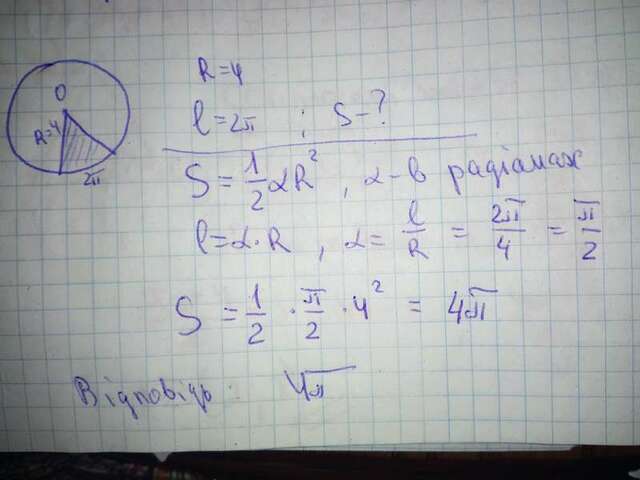 O
R=4
2π
R=4
l=2π ; S-?
S = 1/2 αR², α-в радіанах
l=α·R, α = l/R = 2π/4 = π/2
S = 1/2 · π/2 · 4² = 4π
Відповідь: 4π